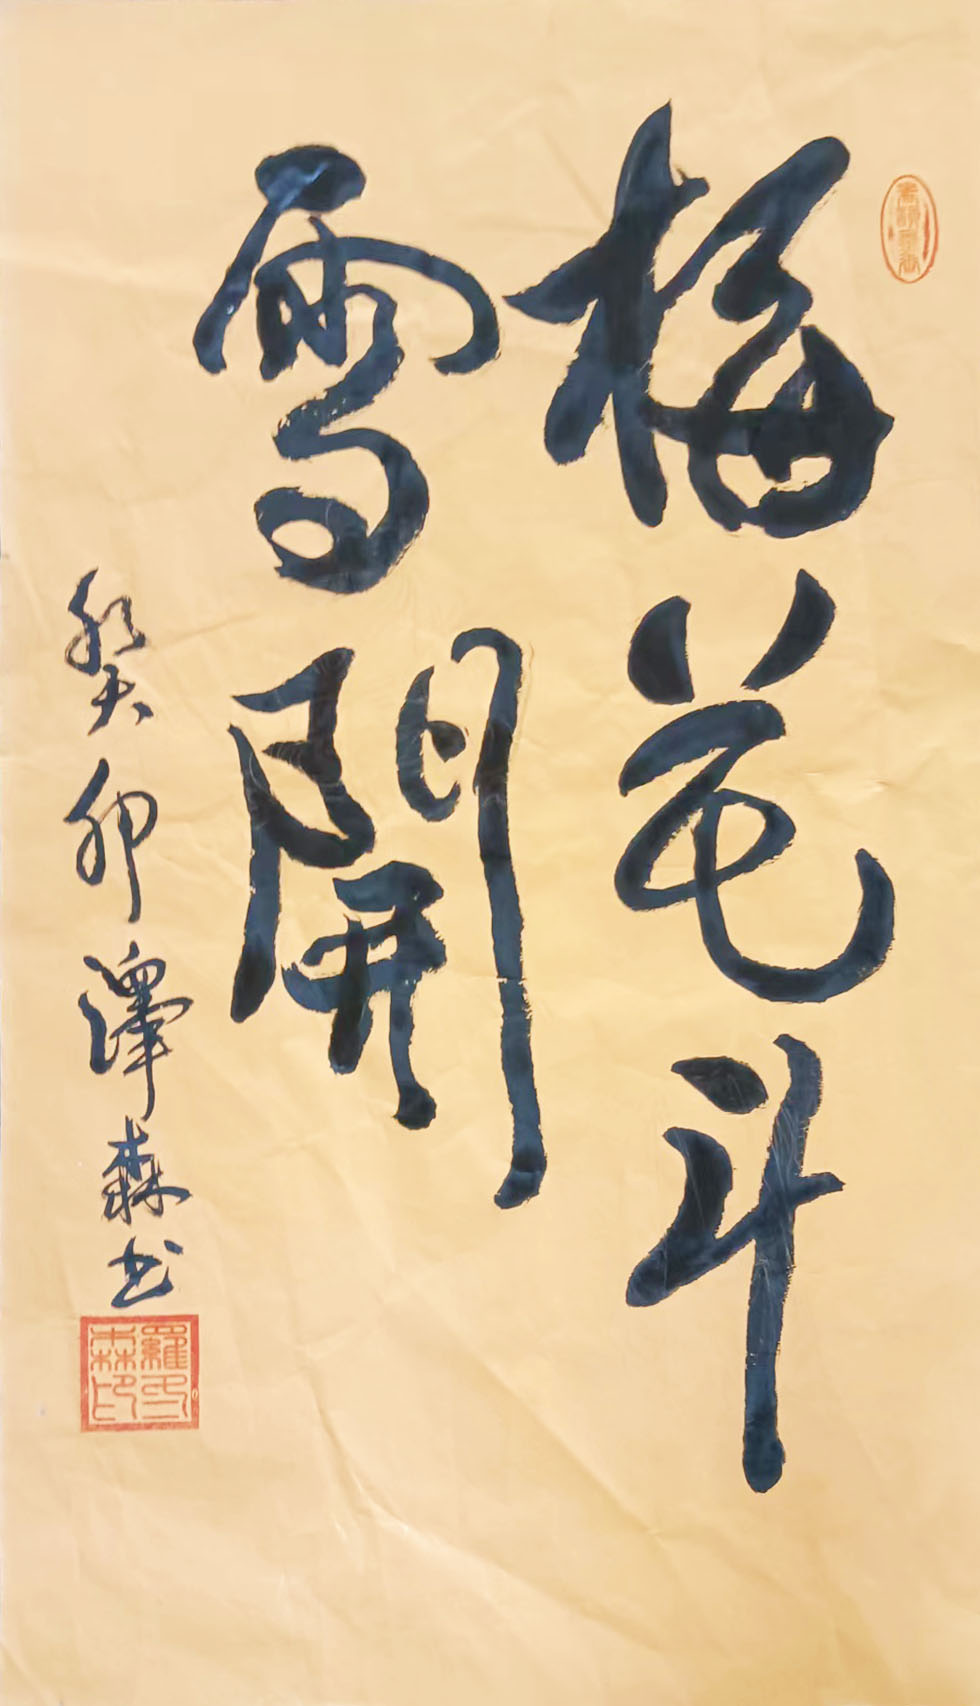 梅花斗
雪開
癸卯澤森书